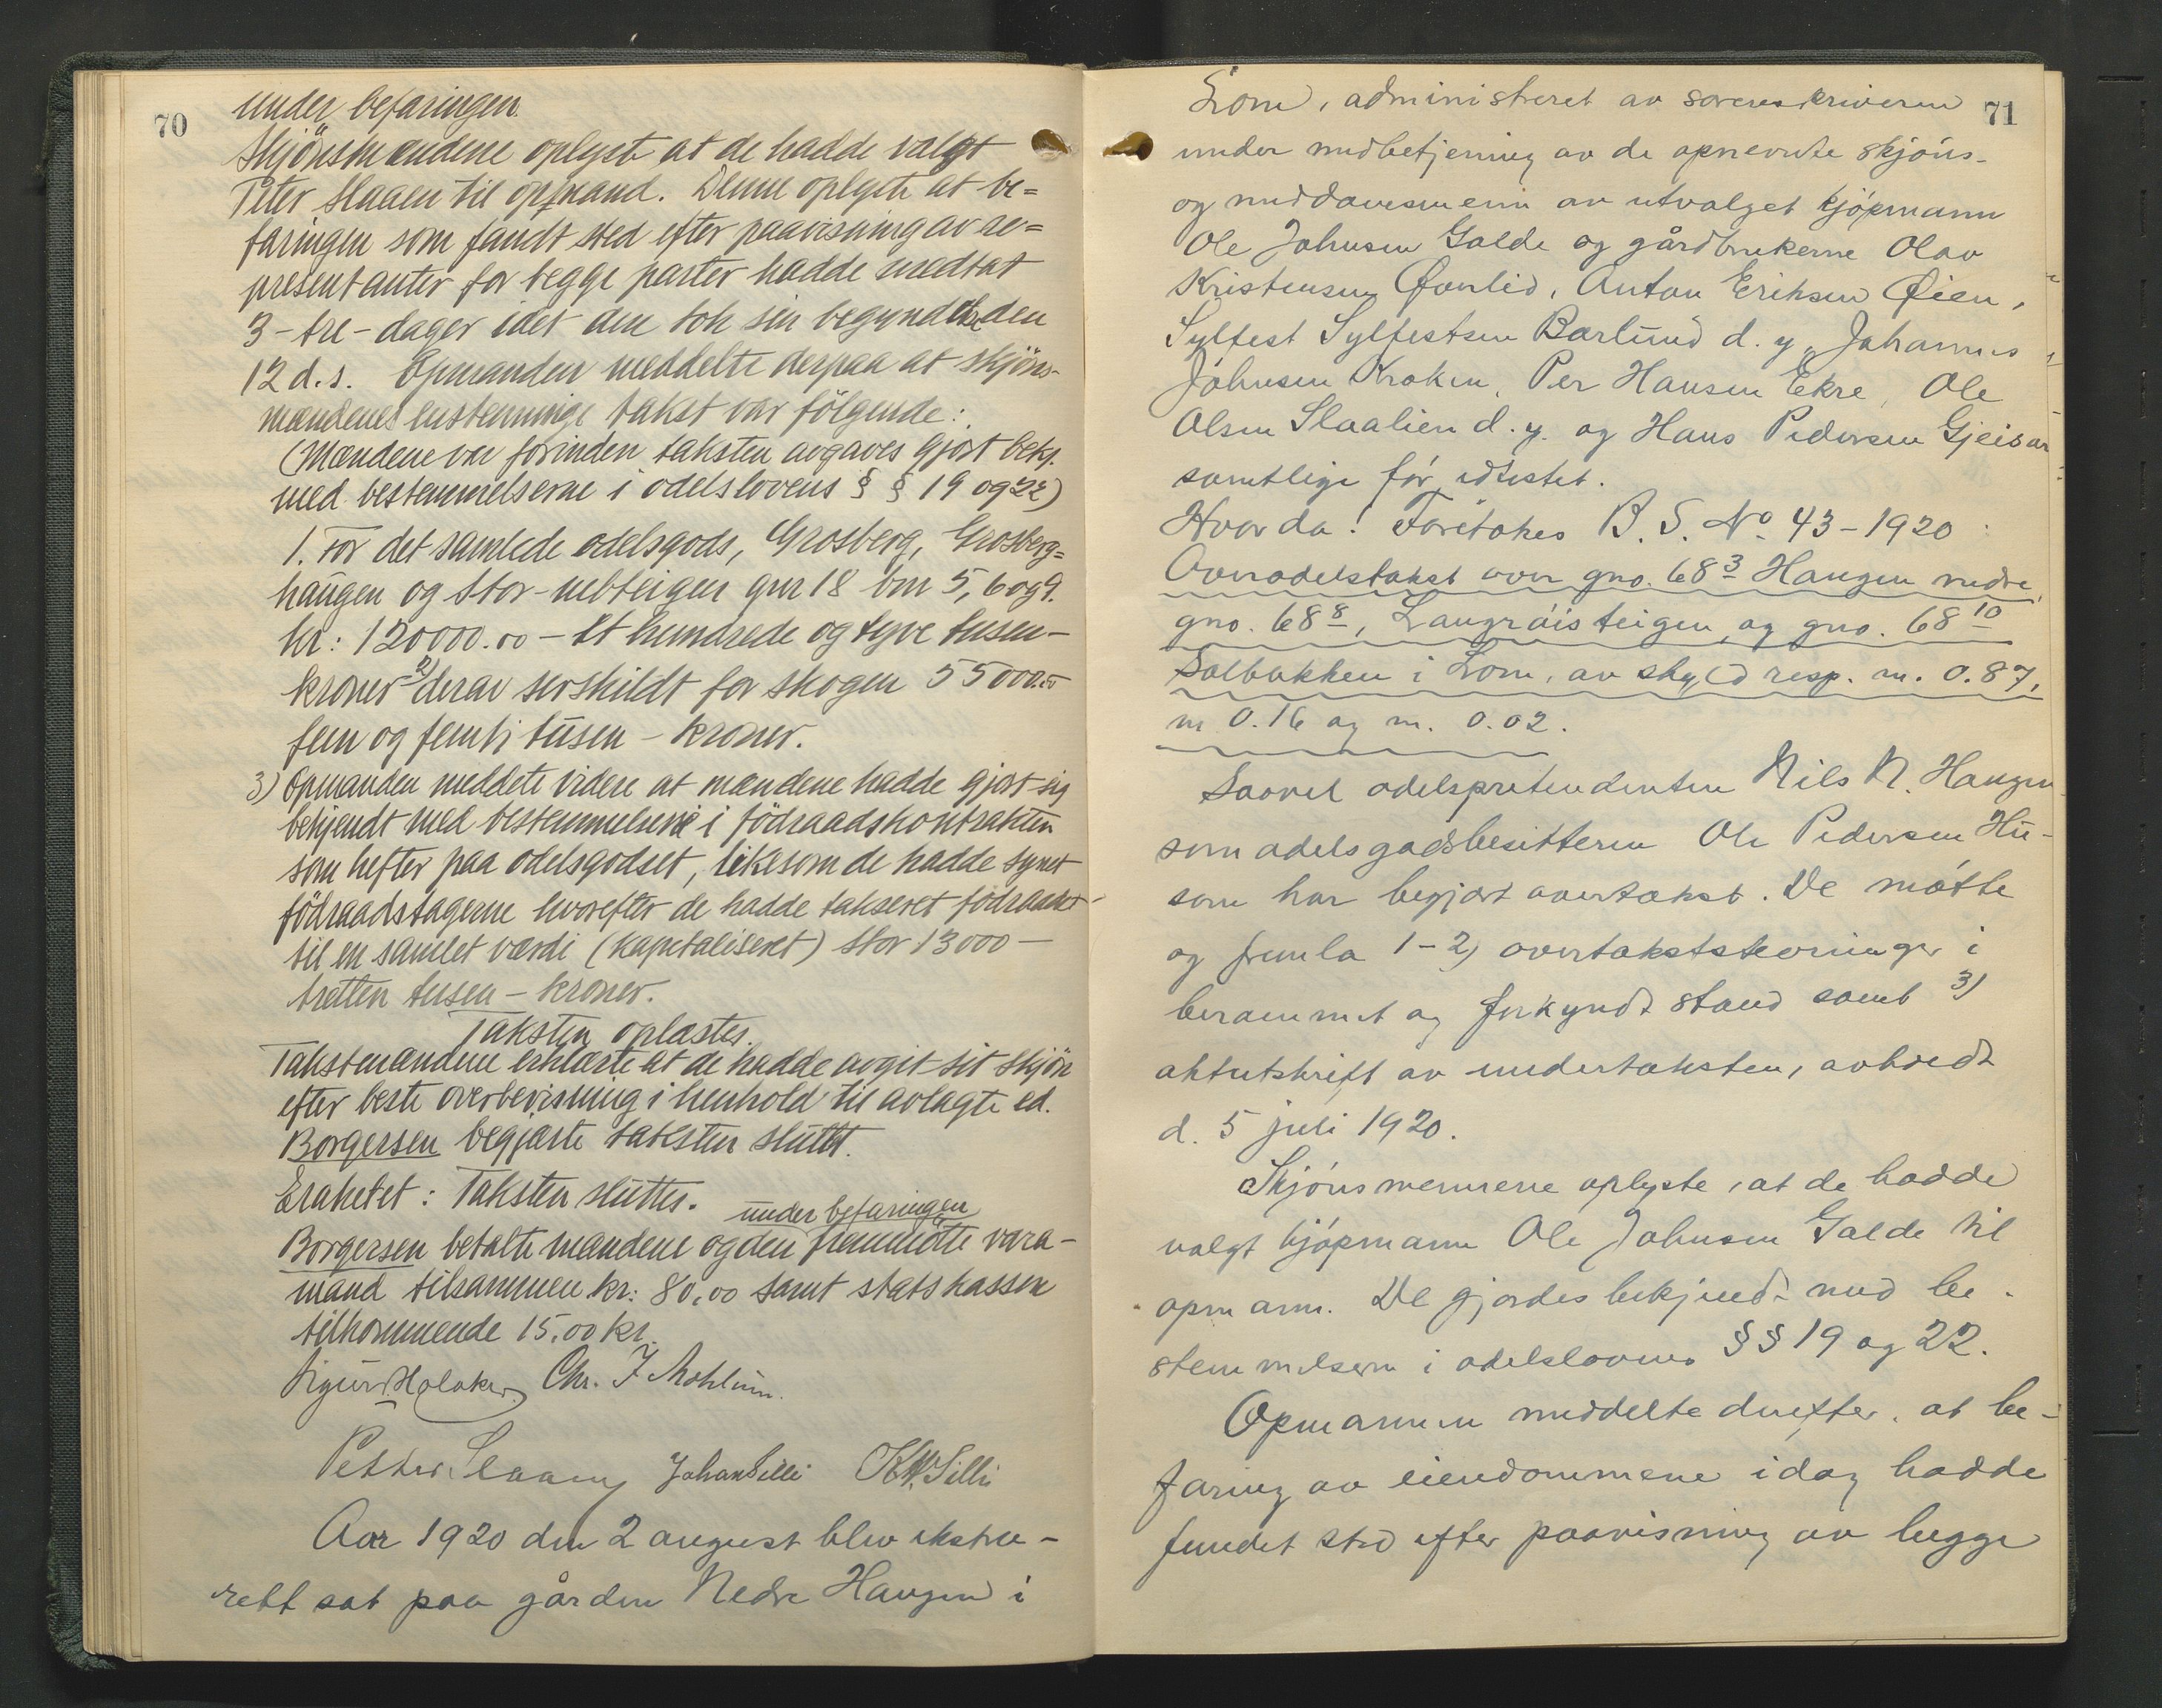 70
under befaringen.
Skjönsmændene oplyste at de hadde valgt
Peter Slaaen til opmand. Denne oplyste at be=
faringen som fandt sted efter paavisning av re=
presentanter for begge parter hadde medtat
3 - tre - dager idet den tok sin begyndelse den
12 d.s. Opmanden meddelte derpaa at skjöns-
mændenes enstemmige takst var fölgende:
(Mændene var forinden taksten avgaves gjort bekj.
med bestemmelserne i odelslovens § § 19 og 22)
1. For det samlede odelsgods, Grosberg, Grosberg=
haugen og Stor-nebteigen gnr 18 bnr 5, 6 og 9.
kr: 120000.00 - Et hundrede og tyve tusen -
kroner 2) derav serskildt for skogen 55000.00
fem og femti tusen - kroner.
3) Opmanden meddelte videre at mændene hadde gjort sig
bekjendt med bestemmelserne i födraadskontrakten
som hefter paa odelsgodset, likesom de hadde synet
födraadstagerne hvorefter de hadde takseret födraadet
til en samlet værdi (kapitaliseret) stor 13000 -
tretten tusen - kroner.
Taksten oplæstes.
Takstmændene erklærte at de hadde avgit sit skjön
efter beste overbevisning i henhold til avlagte ed.
Borgersen begjærte taksten sluttet.
Eraktet: Taksten sluttes.
under befaringen
Borgersen betalte mændene og den fremmötte vara-
mand tilsammen kr: 80,00 samt statskassen
tilkommende 15,00 kr.
Sigurd Holaker Chr. J. Mohlum.
Petter Slaaen Johan Silli K.W. Silli
Aar 1920 den 2 august blev ekstra-
rett sat paa gården Nedre Haugen i
71
Lom, administreret av sorenskriveren
under medbetjening av de opnevnte skjóns-
og meddomsmenn av utvalget kjópmann
Ole Johnsen Galde og gårdbrukerne Olav
Kristensen Qvnlid, Anton Eriksen Øien,
Sylfest Sylfestsen Barlund d.y., Johannes
Johnsen Kroken, Per Hansen Ekre, Ole
Olsen Slaalien d.y. og Hans Pedersen Gjeisar
samtlige fór edfestet.
Hvorda! Foretokes B. S. No. 43 - 1920:
Overodelstakst over gno. 68 3 Haugen nedre,
gno. 68 8, Langróisteigen og gno. 68 10
Solbakken i Lom, av skyld resp. m. 0.87,
m 0.16 og m. 0.02.
Saavel odelspretendenten Nils N. Haugen
som odelsgodsbesitteren Ole Pedersen Hu-
som har begjært overtakst. De mótte
og fremla 1-2) overtakststevninger i
berammet og forkyndt stand samt 3)
aktutskrift av undertaksten, avholdt
d. 5 juli 1920.
Skjónsmennene oplyste, at de hadde
valgt kjópmann Ole Johnsen Galde til
opmann. De gjordes bekjendt med be-
stemmelsern i odelslovens §§ 19 og 22.
Opmannen meddelte derefter, at be-
faring av eiendommene idag hadde
fundet sted efter paavisning av begge